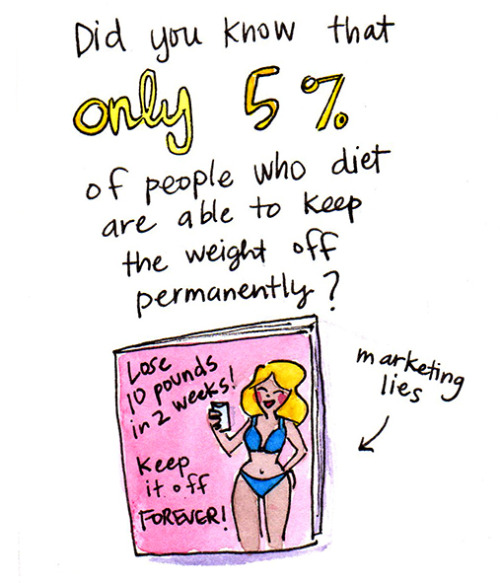 Did you know that
only 5%
of people who diet
are able to keep
the weight off
permanently?
Lose
10 pounds
in 2 weeks!
Keep
it off
FOREVER!
marketing
lies